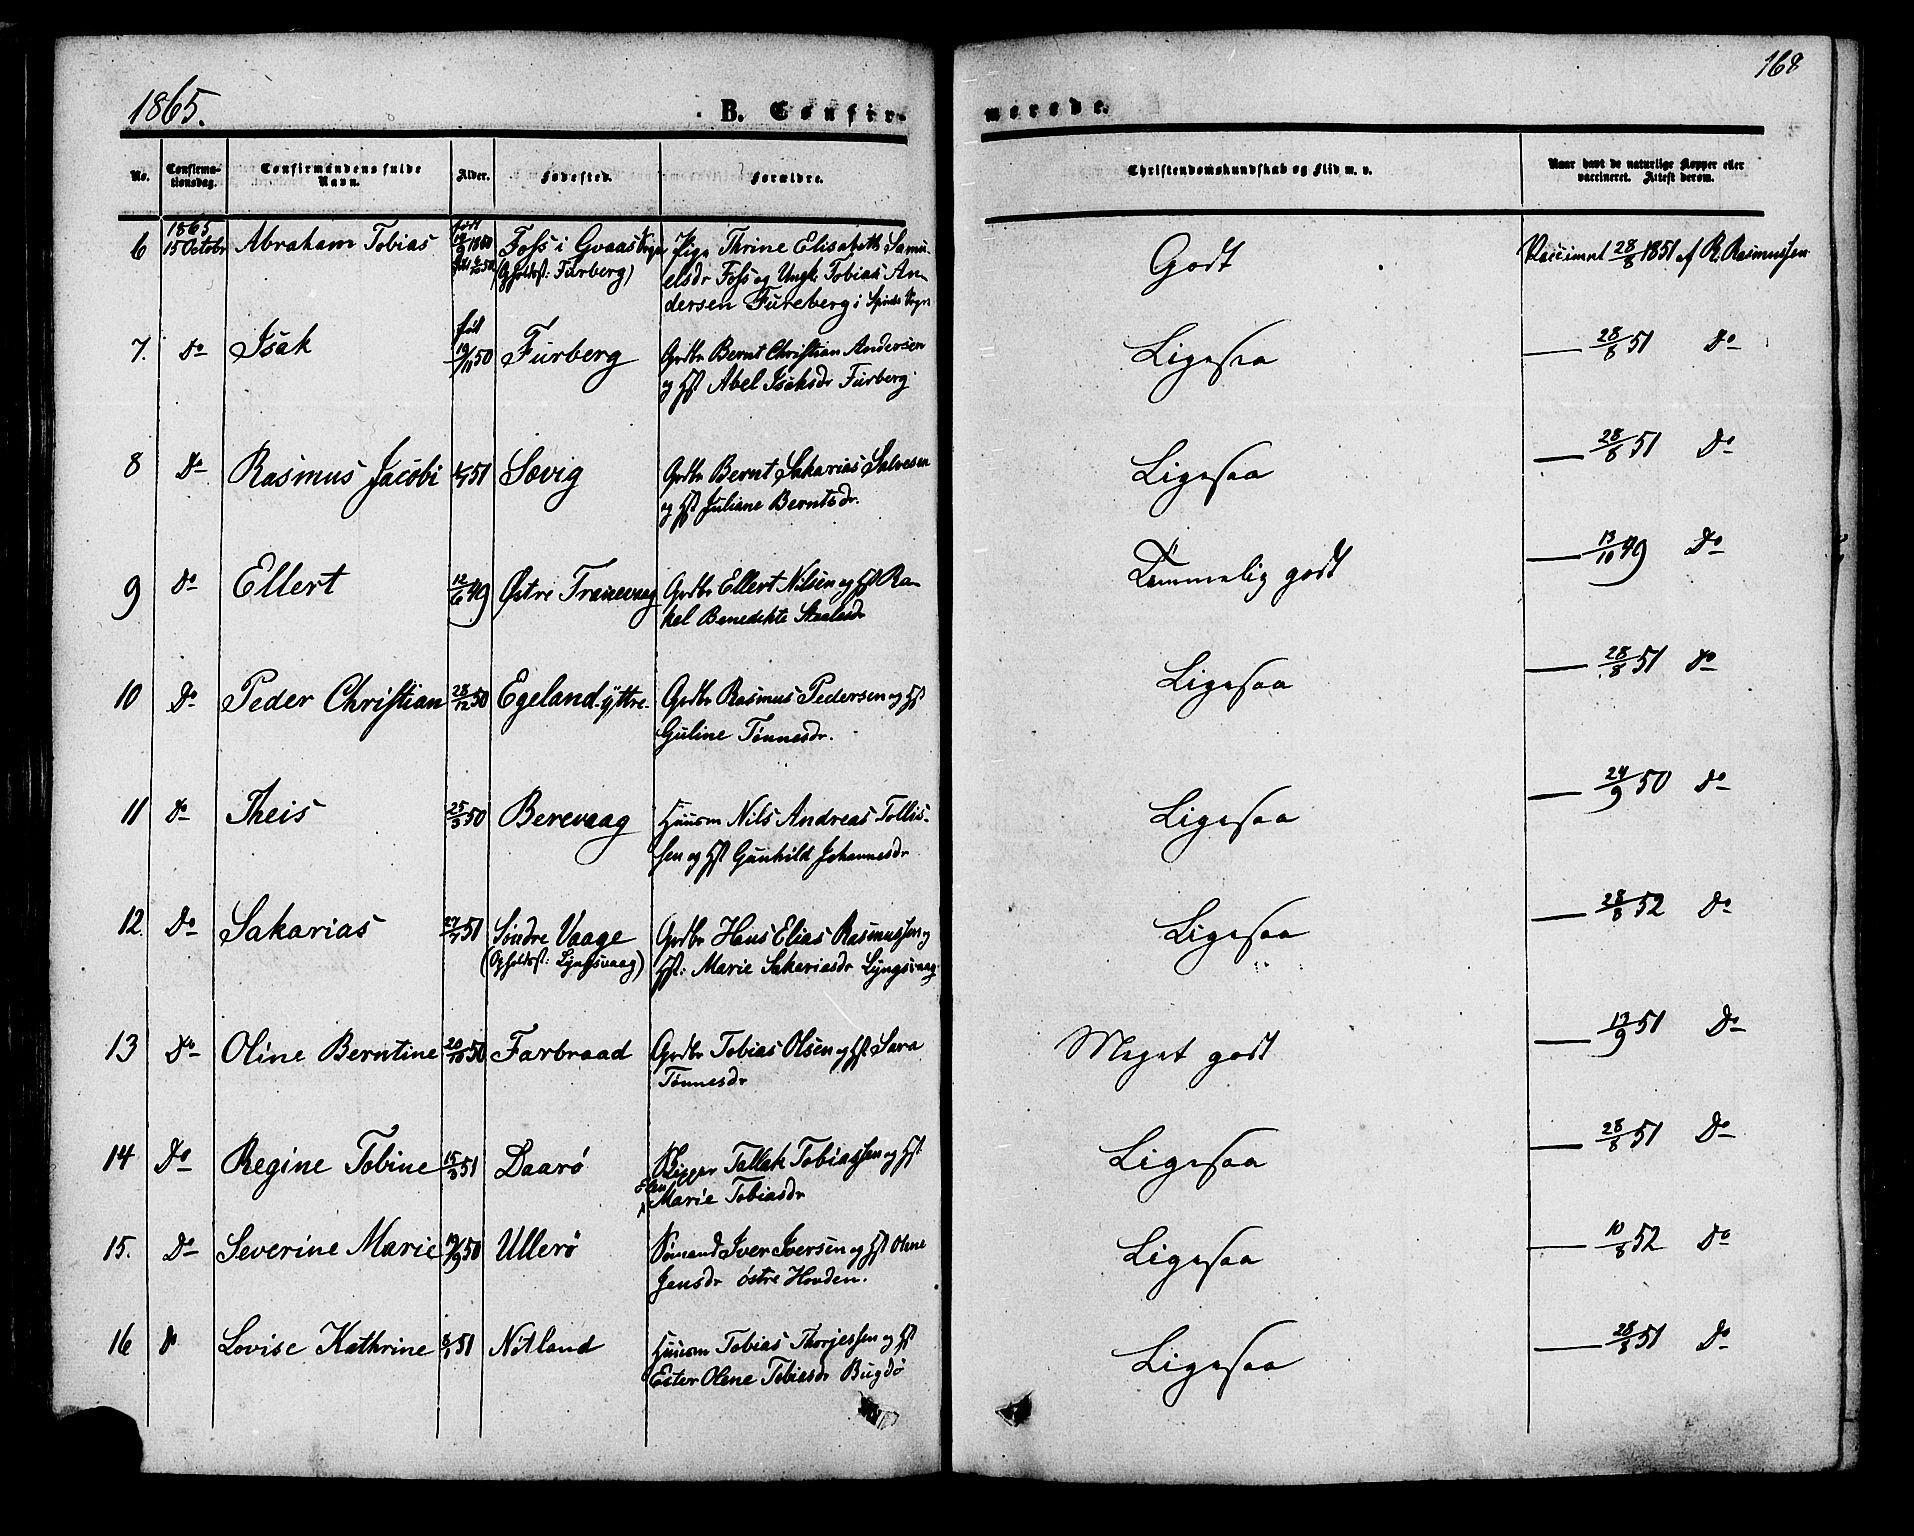 1865.
B. Confirmerede.
168
No.
Confirmationsdag.
Confirmandens fulde Navn.
Alder.
Fødested.
Forældre.
Christendomskundskab og Flid m. v.
Naar havt de naturlige Kopper eller vaccineret. Attest derom.
6 1865 15 Octobr Abraham Tobias født Foss i Gvaas Sogn Pige Thrine Elisabeth Samu- Godt Vaccineret 28/8 1851 af R. Rasmussen
(Opholdst: Furberg) elsdr Foss og Ungk. Tobias An-
dersen Fureberg i Spinds Sogn
7. Do Isak født 19/11 50 Furberg Grdbr Bernt Christian Andersen Ligesaa — 28/8 51 Do
og Hst Abel Isaksdr Furberg.
8 Do Rasmus Jacobi 51 Sævig Grdbr Bernt Sakarias Salvesen Ligesaa — 28/8 51 Do
og Hst Juliane Berntsdr.
9 Do Ellert 12/6 49 Østre Tranevaag Grdbr Ellert Nilsen og Hst Ra- Temmelig godt — 13/10 49 Do
kel Benedikte Staalesdr
10 Do Peder Christian 28/12 50 Egeland-ÿttre Grdbr Rasmus Pedersen og Hst Ligesaa — 28/8 51 Do
Guline Tønnesdr.
11 Do Theis 25/3 50 Berevaag Huusm Nils Andreas Tollis- Ligesaa — 24/9 50 Do
sen og Hst Gunhild Johannesdr
12. Do Sakarias 51 Søndre Vaage Grdbr Hans Elias Rasmussen og Ligesaa — 28/8 52 Do
(Opholdst: Lyngsvaag) Hst: Marie Sakariasdr Lyngsvaag
13 Do Oline Berntine 20/10 50 Farbraad Grdbr Tobias Olsen og Hst Sara Meget godt — 13/9 51 Do
Tønnesdr
14 Do Regine Tobine 15/3 51 Daarø Skipper Tallak Tobiassen og Hst: Ligesaa — 28/8 51 Do
Elen Marie Tobiasdr
15. Do Severine Marie 19/9 50 Ullerø Sømand Iver Iversen og Hst Olene Ligesaa — 10/8 52 Do
Jensdr østre Hovden.
16 Do Lovise Kathrine 51 Nøtland Huusm Tobias Thorjessen og Hst Ligesaa — 28/8 51 Do
Ester Olene Tobiasdr Bugdø